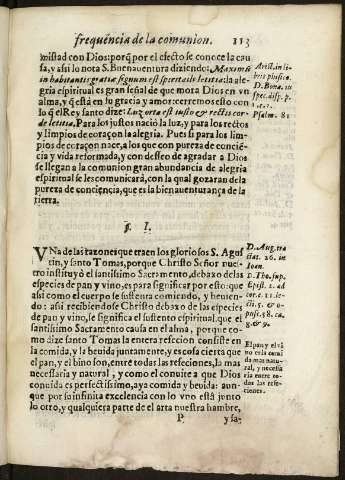 frequência de la comunion.
113
mistad con Dios: porq̃ por el efecto se conoce la cau
sa, y assi lo nota S. Buenauentura diziendo: Maximũ
in habitantis gratiæ signum est spiritalis letitia: la ale
gria espiritual es gran señal de que mora Dios en vn
alma, y q̃ està en su gracia y amor: cerremos esto con
lo q̃ el Rey santo dize: Lux orta est iusto & rectis cor
de letitia, Para los justos naciò la luz, y para los rectos
y limpios de coraçon la alegria. Pues si para los lim
pios de coraçon nace, a los que con pureza de conciẽ-
cia y vida reformada, y con desseo de agradar a Dios
se llegan a la comunion gran abundancia de alegria
espiritual se les comunicarà, con la qual gozaran de la
pureza de conciencia, que es la bienauenturança de la
tierra.
Arist. in li
bris phisico.
D. Bona. in
spec. disp. p.
Psalm. 81
§. I.
VNa de las razones que traen los gloriosos S. Agus
tin, y santo Tomas, porque Christo Señor nues-
tro instituyò el santissimo Sacramento, debaxo de las
especies de pan y vino, es para significar por esto: que
assi como el cuerpo se sustenta comiendo, y beuien-
do: assi recibiendo de Christo debaxo de las especies
de pan y vino, se significa el sustento espiritual, que el
santissimo Sacramento causa en el alma, porque co-
mo dize santo Tomas la entera refeccion consiste en
la comida, y la beuida juntamente, y es cosa cierta que
el pan, y el bino son, entre todas las refeciones, la mas
necessaria y natural, y como el conuite a que Dios
conuida es perfectissimo, aya comida y beuida: aun-
que por su infinita excelencia con lo vno està junto
lo otro, y qualquiera parte de el arta nuestra hambre,
D. Aug. tra
ctat. 26. in
Ioan.
D. Tho. sup.
Epist. 1. ad
cor. c. 11. le-
cti. 5. & o-
pusc. 58. ca.
8. & 9.
El pan y el vi
no es la comi
da mas natu-
ral, y necessa
ria entre to-
das las refe-
ciones.
P
y sa-